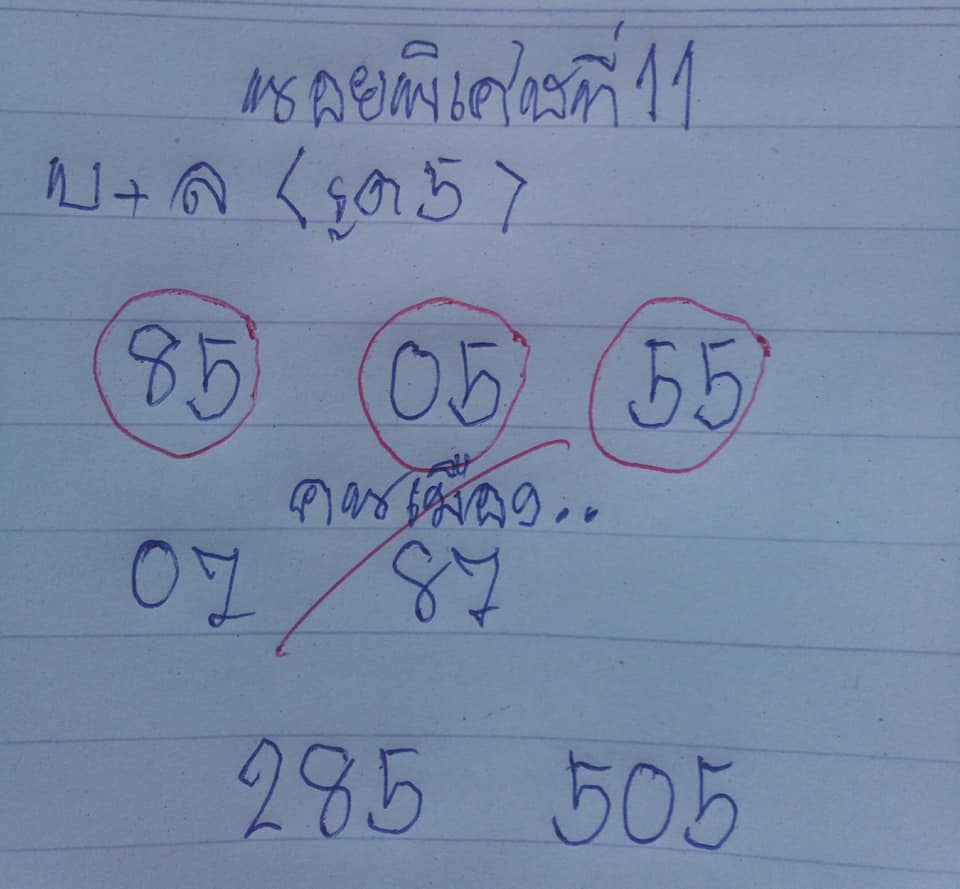 หอยพิเศษที่ 11
บ+ล (รูด 5)
85 05 55
คนเมือง..
07 87
285 505